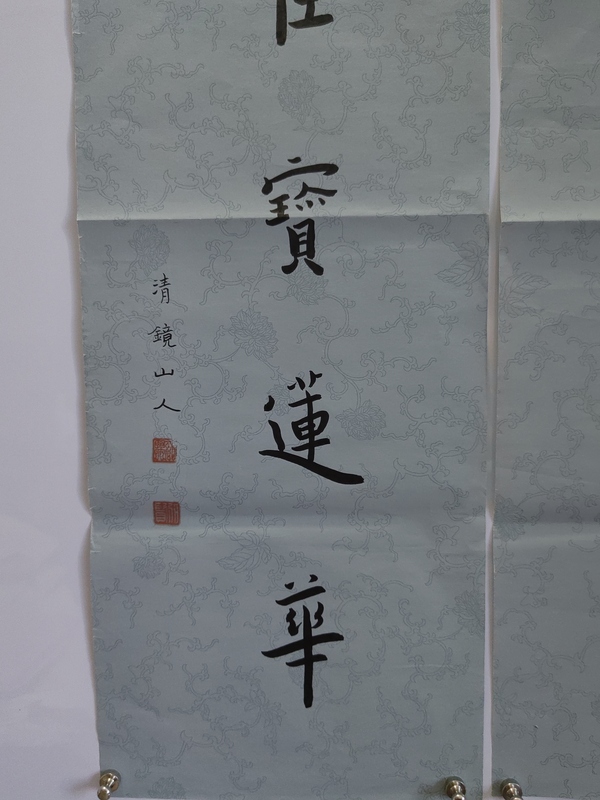 寶蓮華
清鏡山人